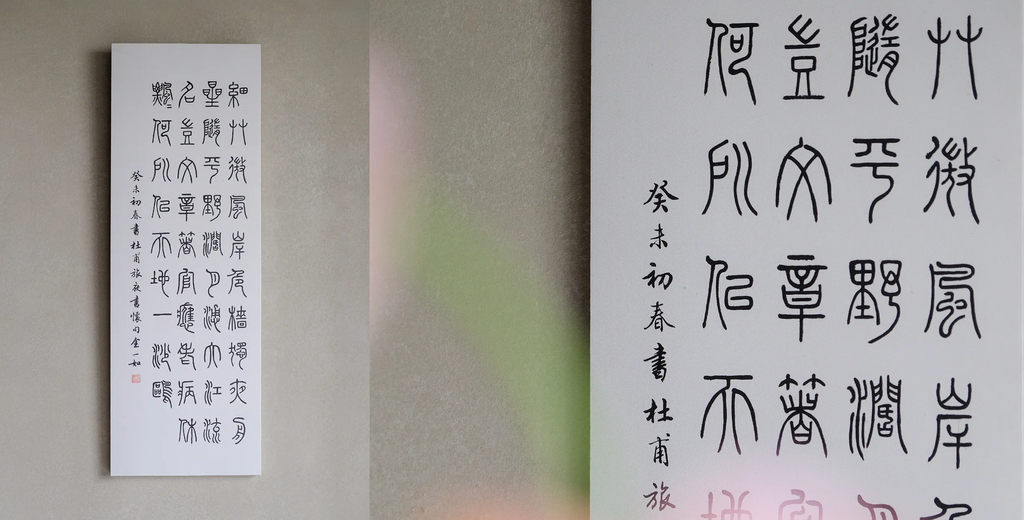 細艸微風岸危檣獨夜舟
星隨平野闊月湧大江流
名豈文章著官應老病休
飄〻何所佀天地一沙鷗
癸未初春書杜甫旅夜書懷句金一如
艸微風岸危
隨平野闊月
豈文章著官
何所佀天地
癸未初春書杜甫旅